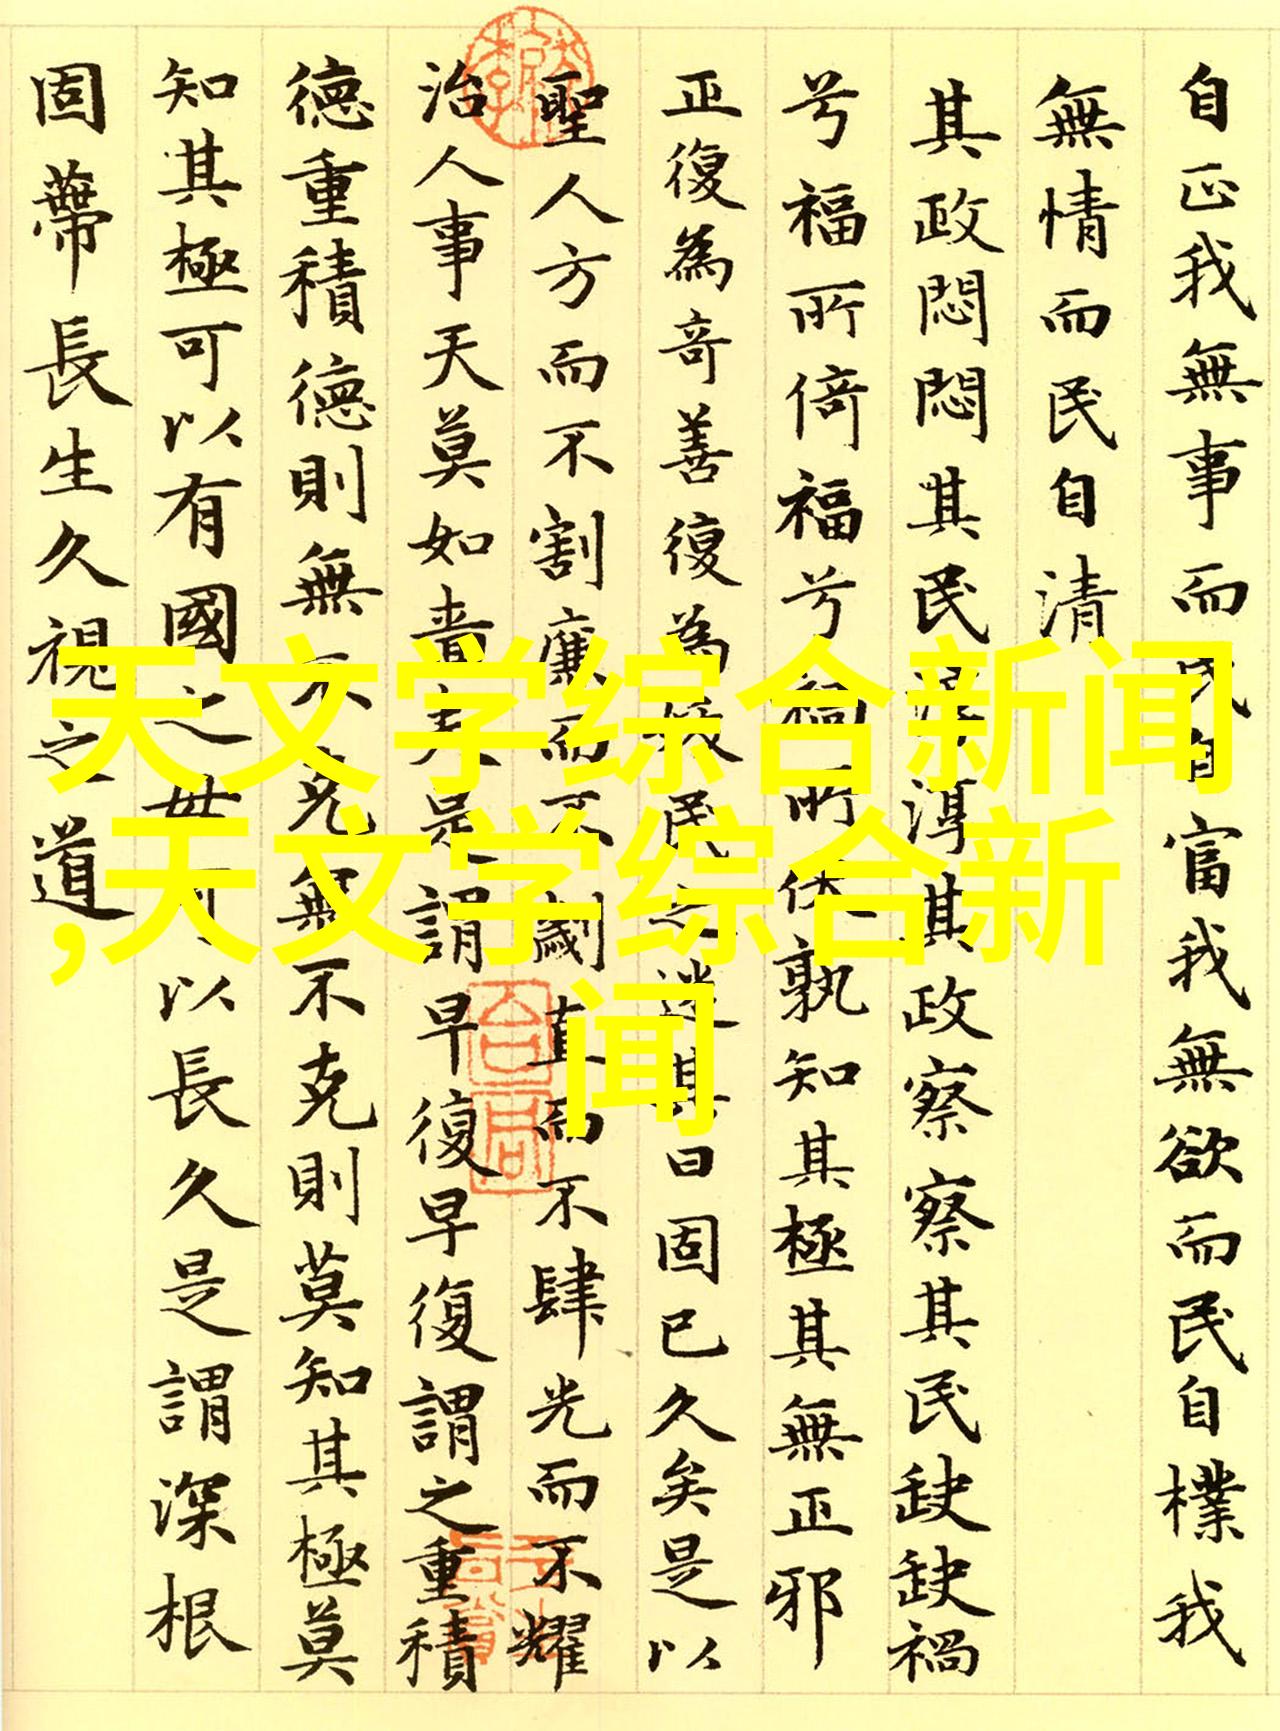 自正我無事而民自富我無欲而民自樸我
無情而民自清
其政悶悶其民淳淳其政察察其民缺缺禍
兮福所倚福兮禍所伏孰知其極其無正邪
正復為奇善復為妖民之迷其日固已久矣是以
聖人方而不割廉而不劌直而不肆光而不耀
治人事天莫如嗇夫是謂早復早復謂之重積
德重積德則無不克無不克則莫知其極莫
知其極可以有國之母可以長久是謂深根
固蔕長生久視之道
天文学综合新闻
,天文学综合新
闻